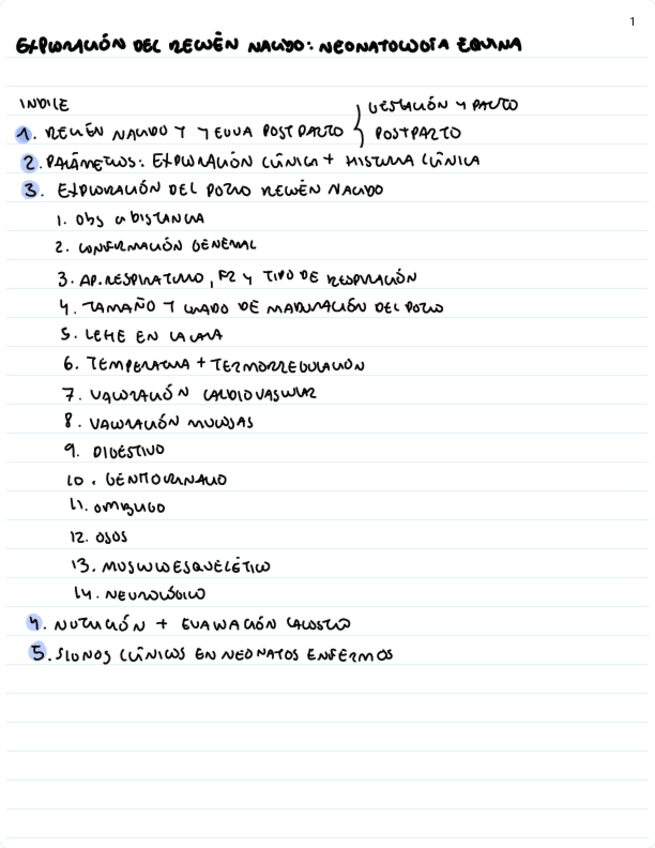 1
EXPLORACIÓN DEL RECIÉN NACIDO: NEONATOLOGÍA EQUINA
INDICE
GESTACIÓN Y PARTO
1. RECIÉN NACIDO Y YEGUA POSTPARTO
POSTPARTO
2. PARÁMETROS: EXPLORACIÓN CLÍNICA + HISTORIA CLÍNICA
3. EXPLORACIÓN DEL POTRO RECIÉN NACIDO
1. Obs a DISTANCIA
2. CONFORMACIÓN GENERAL
3. AP. RESPIRATORIO, FR Y TIPO DE RESPIRACIÓN
4. TAMAÑO Y GRADO DE MADURACIÓN DEL POTRO
5. LECHE EN LA CARA
6. TEMPERATURA + TERMORREGULACIÓN
7. VALORACIÓN CARDIOVASCULAR
8. VALORACIÓN MUCOSAS
9. DIGESTIVO
10. GENITOURINARIO
11. OMBLIGO
12. OJOS
13. MUSCULOESQUELÉTICO
14. NEUROLÓGICO
4. NUTRICIÓN + EVALUACIÓN CALOSTRO
5. SIGNOS CLÍNICOS EN NEONATOS ENFERMOS